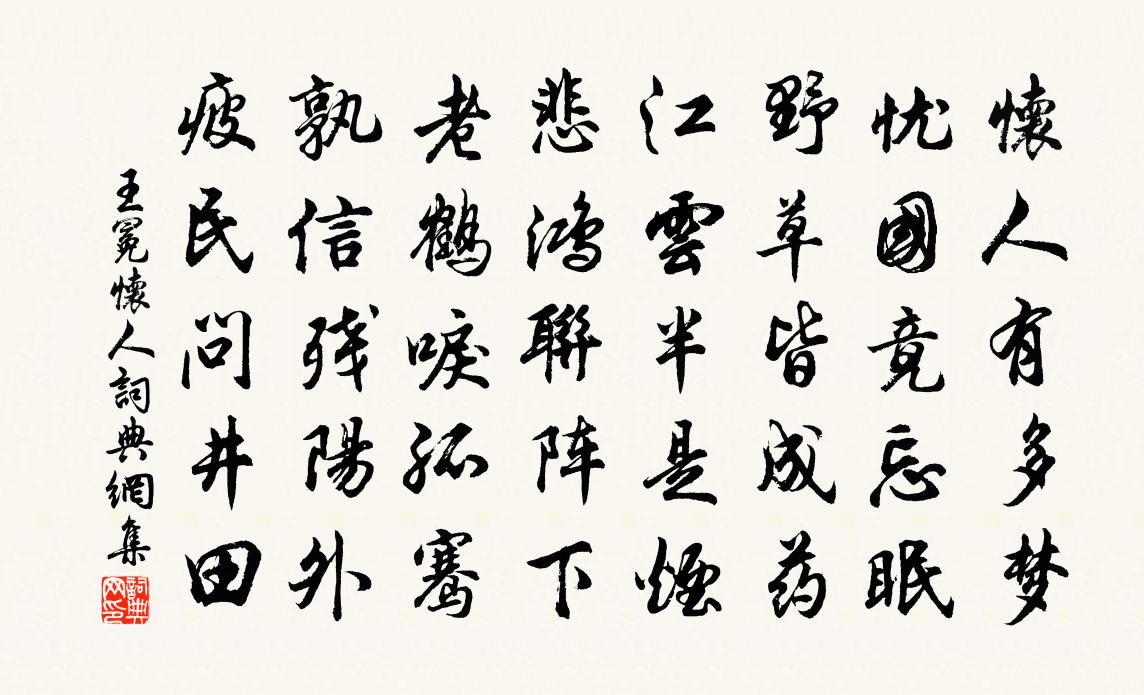 懷人有多梦
忧國竟忘眠
野草皆成药
江雲半是煙
悲鴻聯阵下
老鶴唳孤騫
孰信残陽外
疲民問井田
王冕懷人詞典網集
詞典网印